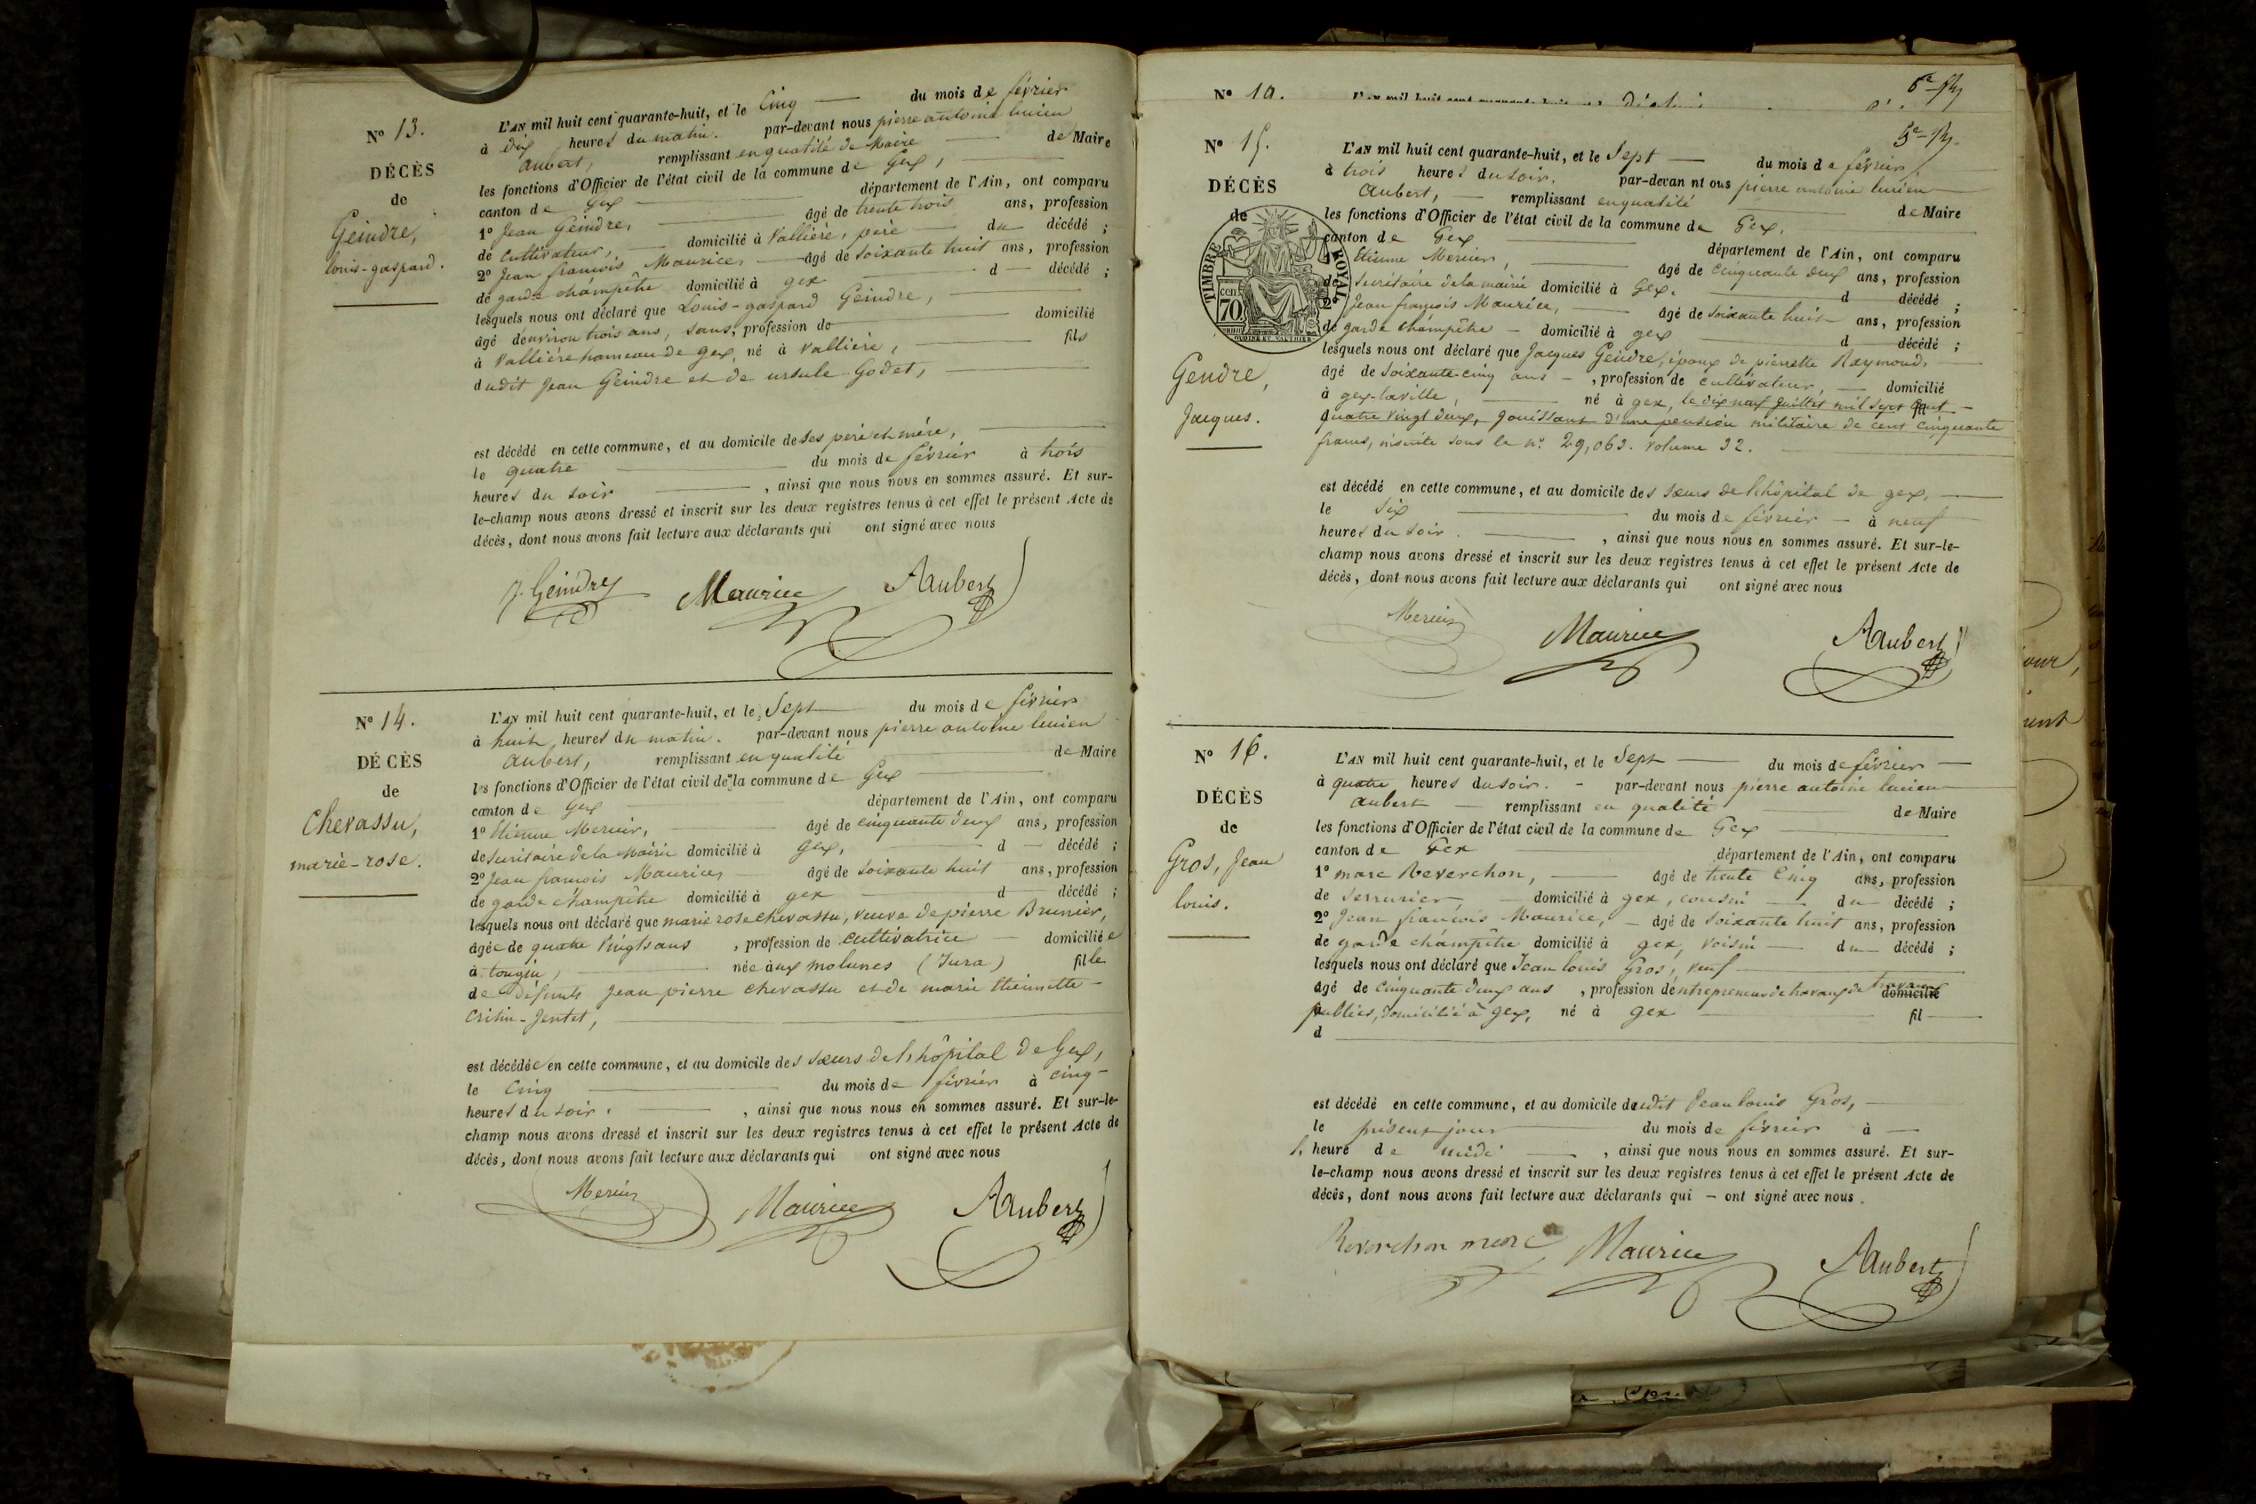 N° 13.
DÉCÈS
de
Geindre,
louis-gaspard.
L'AN mil huit cent quarante-huit, et le Cinq du mois de février
à dix heures du matin. par-devant nous pierre antoine lucien
aubert, remplissant en qualité de Maire de Maire
les fonctions d'Officier de l'état civil de la commune de Gex,
canton de Gex département de l'Ain, ont comparu
1° Jean Geindre, âgé de trente trois ans, profession
de cultivateur, domicilié à Vallière, père du décédé ;
2° Jean françois Maurice, âgé de soixante huit ans, profession
de garde champêtre domicilié à gex d décédé ;
lesquels nous ont déclaré que Louis-gaspard Geindre,
âgé denviron trois ans, sans, profession de domicilié
à Vallière hameau de gex, né à Vallière, fils
dudit Jean Geindre et de ursule Godet,
est décédé en cette commune, et au domicile de ses père et mère,
le quatre du mois de février à trois
heures du soir , ainsi que nous nous en sommes assuré. Et sur-
le-champ nous avons dressé et inscrit sur les deux registres tenus à cet effet le présent Acte de
décès, dont nous avons fait lecture aux déclarants qui ont signé avec nous
J. Geindre Maurice Aubert
N° 14.
DÉCÈS
de
Chevassu,
marie-rose.
L'AN mil huit cent quarante-huit, et le Sept du mois de février
à huit heures du matin. par-devant nous pierre antoine lucien
aubert, remplissant en qualité de Maire
les fonctions d'Officier de l'état civil de la commune de Gex
canton de Gex département de l'Ain, ont comparu
1° Etienne Mercier, âgé de cinquante deux ans, profession
de secrétaire de la Mairie domicilié à Gex, d décédé ;
2° Jean françois Maurice, âgé de soixante huit ans, profession
de garde champêtre domicilié à gex d décédé ;
lesquels nous ont déclaré que marie rose chevassu, veuve de pierre Brunier,
âgée de quatre vingts ans , profession de cultivatrice domiciliée
à tougin, née aux molunes (Jura) fille
de défunts Jean pierre chevassu et de marie thiennette
est décédée en cette commune, et au domicile des sœurs de l'hôpital de Gex,
le cinq du mois de février à cinq
heures du soir. , ainsi que nous nous en sommes assuré. Et sur-le-
champ nous avons dressé et inscrit sur les deux registres tenus à cet effet le présent Acte de
décès, dont nous avons fait lecture aux déclarants qui ont signé avec nous
Mercier Maurice Aubert
N° 10.
N° 15.
DÉCÈS
de
TIMBRE ROYAL
cen. 70
Gendre,
Jacques.
L'AN mil huit cent quarante-huit, et le Sept du mois de février
à trois heures du soir. par-devan nt ous pierre antoine lucien
aubert, remplissant en qualité de Maire
les fonctions d'Officier de l'état civil de la commune de Gex.
canton de Gex département de l'Ain, ont comparu
Etienne Mercier, âgé de cinquante deux ans, profession
de secrétaire de la mairie domicilié à Gex. d décédé ;
2° Jean françois Maurice, âgé de soixante huit ans, profession
de garde champêtre domicilié à gex d décédé ;
lesquels nous ont déclaré que Jacques Gendre, époux de pierrette Raymond,
âgé de soixante-cinq ans , profession de cultivateur, domicilié
à gex-la-ville, né à gex, le dix neuf Juillet mil sept cent
quatre vingt deux, jouissant d'une pension militaire de cent cinquante
francs, inscrite sous le n° 29,063. volume 32.
est décédé en cette commune, et au domicile des sœurs de l'hôpital de gex,
le six du mois de février à neuf
heures du soir. , ainsi que nous nous en sommes assuré. Et sur-le-
champ nous avons dressé et inscrit sur les deux registres tenus à cet effet le présent Acte de
décès, dont nous avons fait lecture aux déclarants qui ont signé avec nous
Mercier Maurice Aubert
N° 16.
DÉCÈS
de
Gros, Jean
louis.
L'AN mil huit cent quarante-huit, et le Sept du mois de février
à quatre heures du soir. par-devant nous pierre antoine lucien
aubert remplissant en qualité de Maire
les fonctions d'Officier de l'état civil de la commune de Gex
canton de Gex département de l'Ain, ont comparu
1° marc Reverchon, âgé de trente cinq ans, profession
de serrurier domicilié à gex, cousin du décédé ;
2° Jean françois Maurice, âgé de soixante huit ans, profession
de garde champêtre domicilié à gex, voisin du décédé ;
lesquels nous ont déclaré que Jean louis Gros, veuf
âgé de cinquante deux ans , profession dentrepreneur de travaux de travaux domicilié
publics, domicilié à Gex, né à gex fil
d
est décédé en cette commune, et au domicile dudit Jean louis Gros,
le présent jour du mois de février à
heure de midi , ainsi que nous nous en sommes assuré. Et sur-
le-champ nous avons dressé et inscrit sur les deux registres tenus à cet effet le présent Acte de
décès, dont nous avons fait lecture aux déclarants qui ont signé avec nous.
Reverchon marc Maurice Aubert